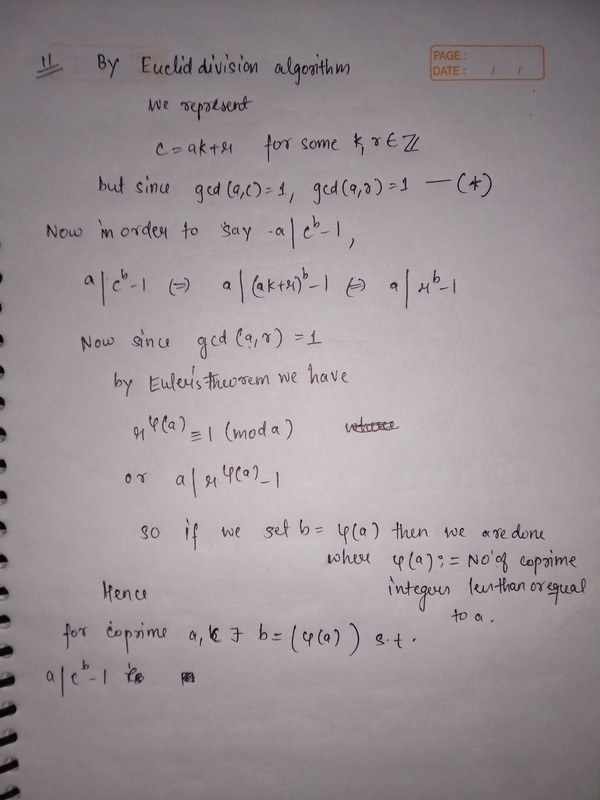 11 By Euclid division algorithm
PAGE :
DATE : / /
We represent
c = ak+r for some k, r ∈ ℤ
but since gcd(a,c)=1, gcd(a,r)=1 — (*)
Now in order to say a | c^b-1,
a | c^b-1 ⇔ a | (ak+r)^b-1 ⇔ a | r^b-1
Now since gcd(a,r) = 1
by Euler's theorem we have
r^φ(a) ≡ 1 (mod a)
or a | r^φ(a)-1
so if we set b = φ(a) then we are done
where φ(a) := No of coprime
Hence integers less than or equal
to a.
for coprime a, c ∃ b = (φ(a)) s.t.
a | c^b-1